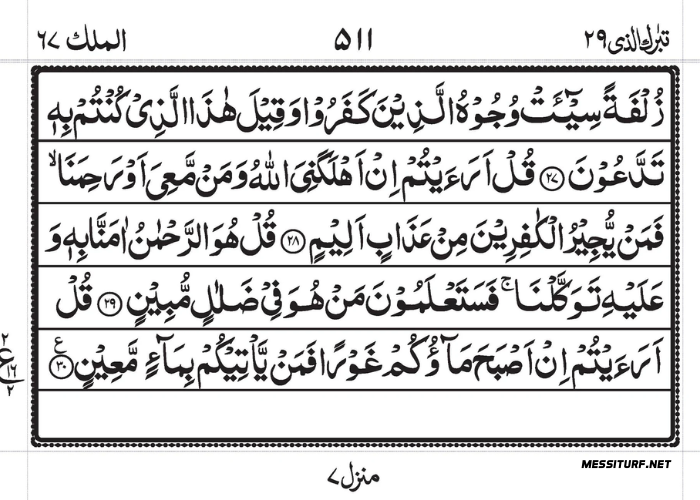 تبٰرك الذی ۲۹
۵۱۱
الملك ۶۷
زُلْفَةً سِیْٓئَتْ وُجُوْهُ الَّذِیْنَ كَفَرُوْا وَ قِیْلَ هٰذَا الَّذِیْ كُنْتُمْ بِهٖ
تَدَّعُوْنَ ﴿۲۷﴾ قُلْ اَرَءَیْتُمْ اِنْ اَهْلَكَنِیَ اللّٰهُ وَ مَنْ مَّعِیَ اَوْ رَحِمَنَا ۙ
فَمَنْ یُّجِیْرُ الْكٰفِرِیْنَ مِنْ عَذَابٍ اَلِیْمٍ ﴿۲۸﴾ قُلْ هُوَ الرَّحْمٰنُ اٰمَنَّا بِهٖ وَ
عَلَیْهِ تَوَكَّلْنَا ۚ فَسَتَعْلَمُوْنَ مَنْ هُوَ فِیْ ضَلٰلٍ مُّبِیْنٍ ﴿۲۹﴾ قُلْ
اَرَءَیْتُمْ اِنْ اَصْبَحَ مَآؤُكُمْ غَوْرًا فَمَنْ یَّاْتِیْكُمْ بِمَآءٍ مَّعِیْنٍ ﴿۳۰﴾ ع
۲
ع
۱۶
۲
منزل ۷
MESSITURF.NET